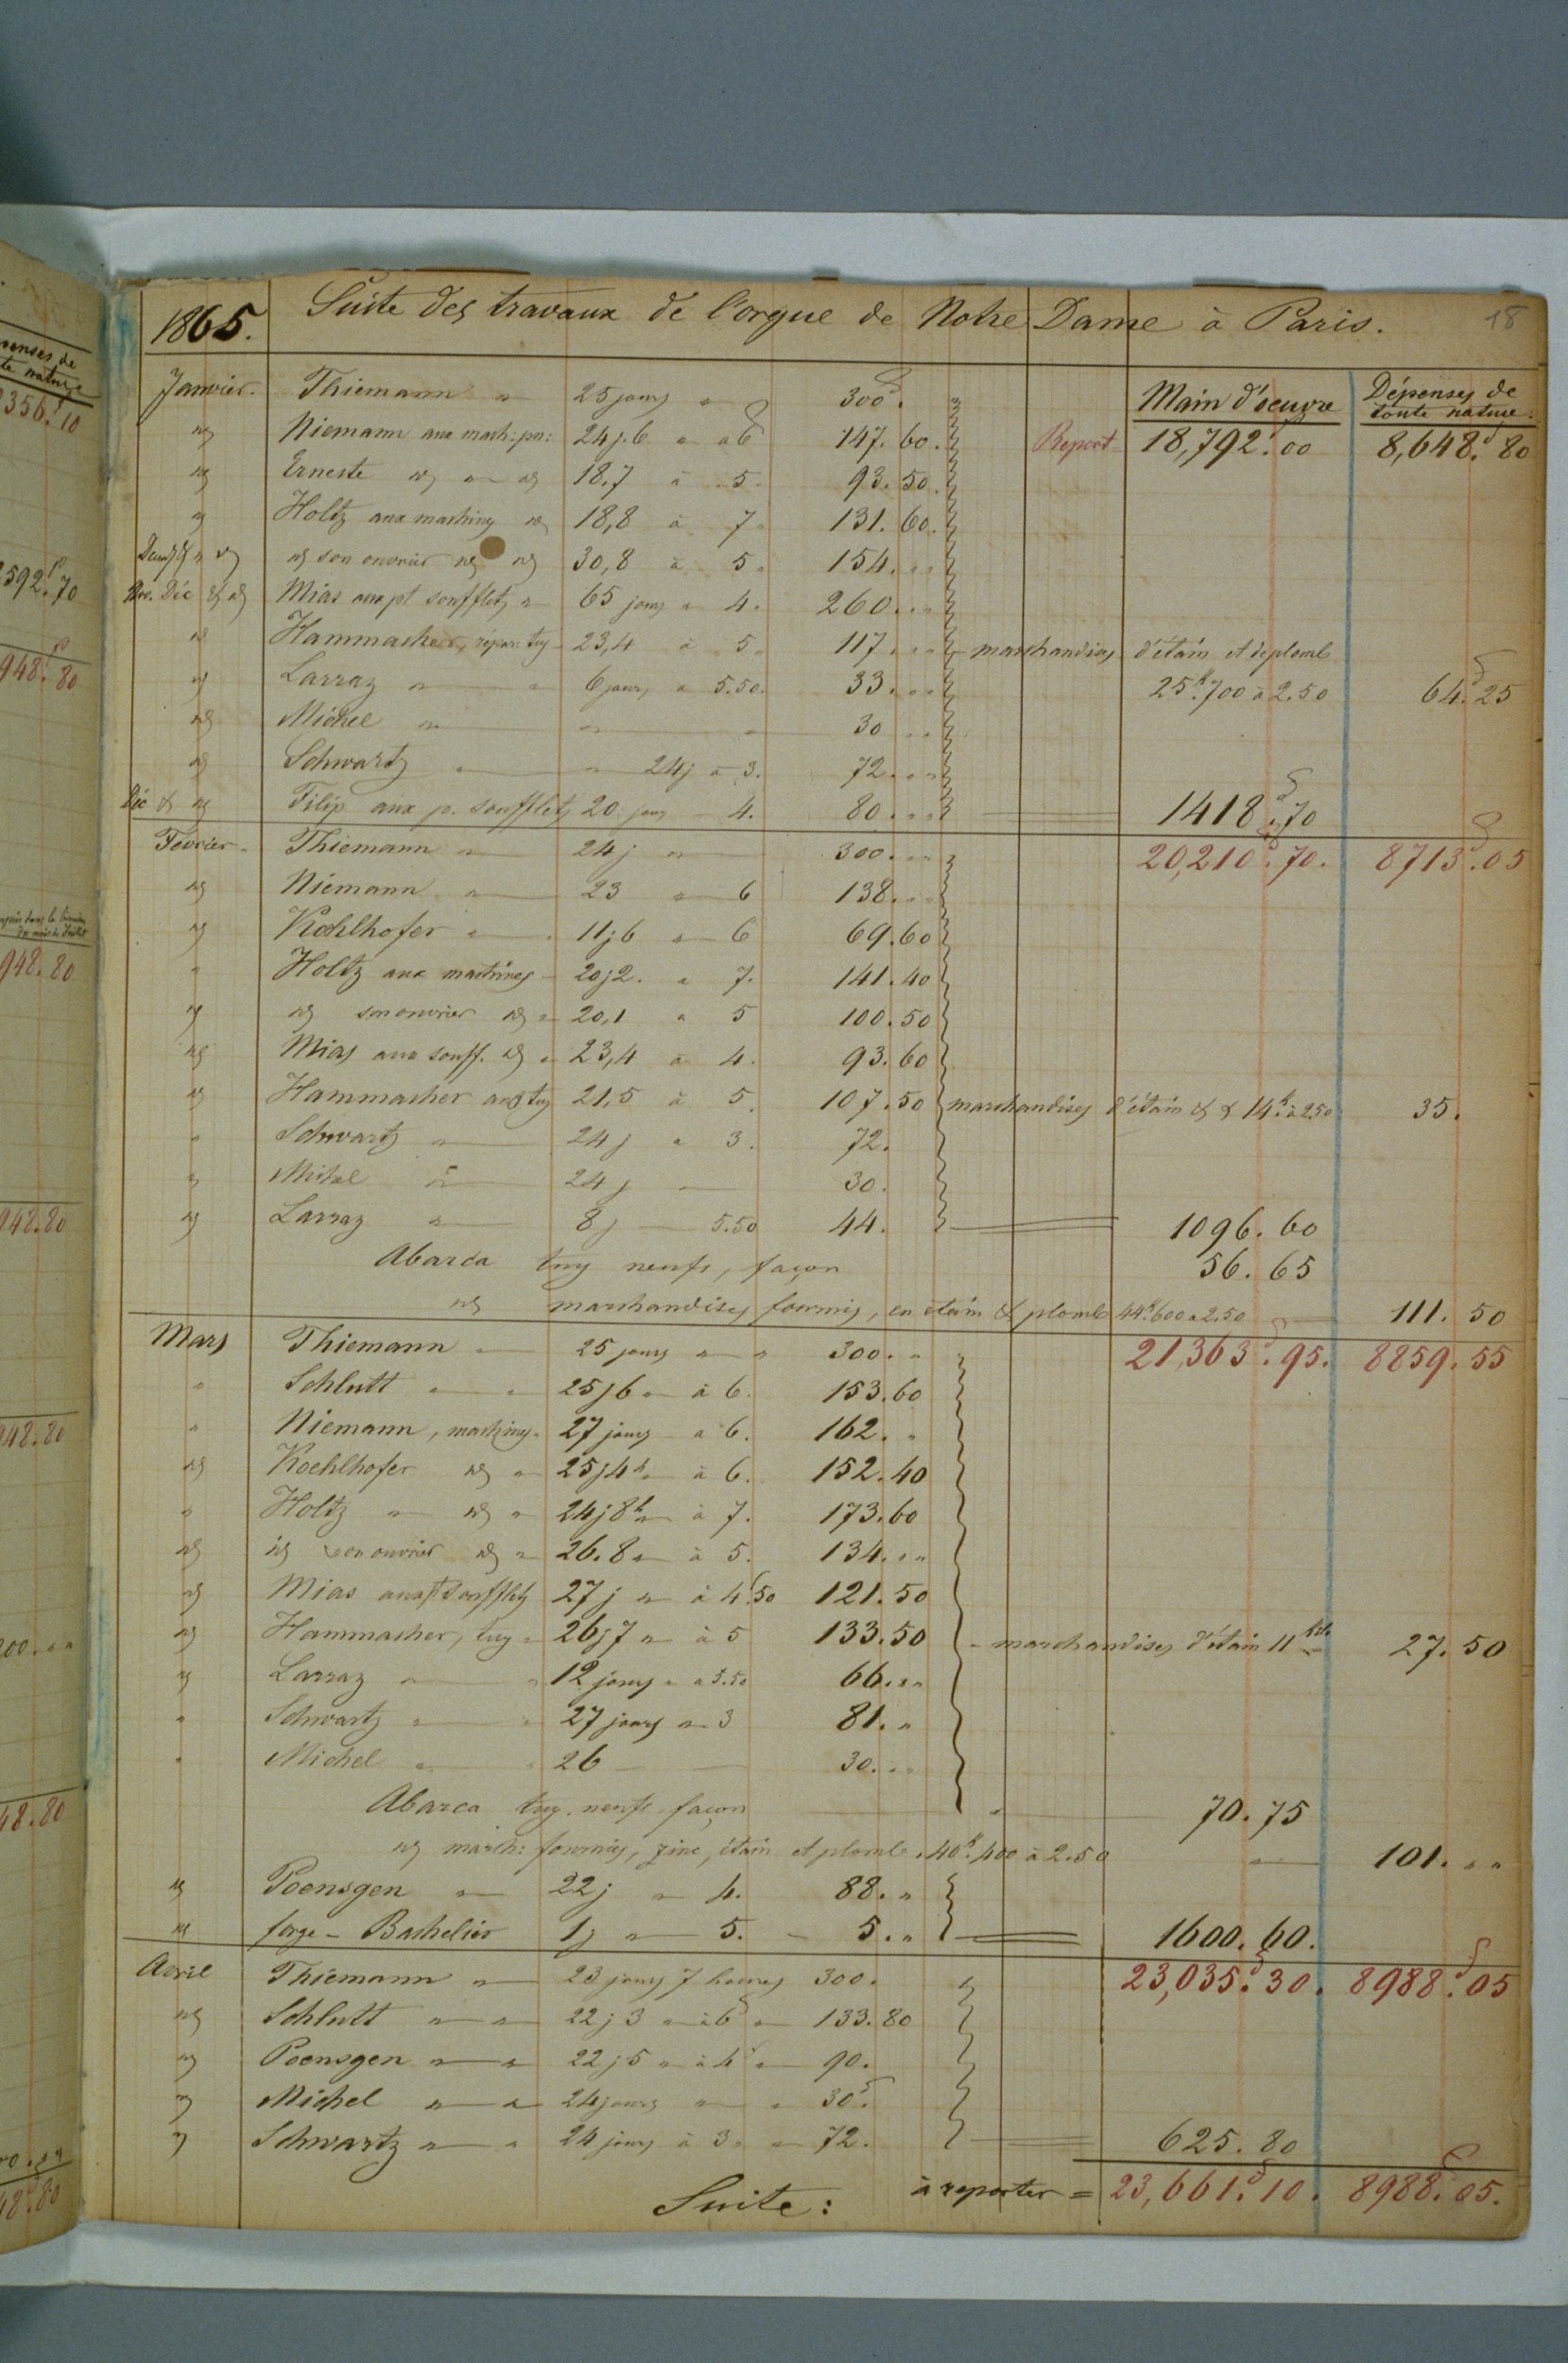 1865. Suite des travaux de l'orgue de Notre Dame à Paris. 18
Main d'oeuvre Dépenses de toute nature.
Janvier. Thiemann " 25 jours " 300f.
id Niemann aux mach: pn: 24j.6 " à 6f 147.60. Report 18,792f.00 8,648f.80
id Erneste id " id 18,7 à 5. 93.50.
id Holtz aux machines id 18,8 à 7. 131.60.
id id son ouvrier id id 30,8 à 5. 154. " "
Nov. Déc & id Mias aux pt soufflets " 65 jours " 4. 260. " "
id Hammacher, répar: tuy 23,4 à 5. 117. " " marchandises d'étain et de plomb
id Larraz " " 6 jours à 5.50. 33. " " 25k.700 à 2.50 64f.25
id Michel " " " 30 " "
id Schwartz " " 24j à 3. 72. " "
Déc & id Filip aux p. soufflets 20 jours - 4. 80. " " 1418f.70
Février. Thiemann " 24j " 300. " " 20,210f.70. 8713f.05
id Niemann " 23 " 6 138. " "
id Koehlhofer " 11j6 " 6 69.60
" Holtz aux machines 20j2. " 7. 141.40
id id son ouvrier id " 20,1 " 5 100.50
id Mias aux souff. id " 23,4 à 4. 93.60
id Hammacher aux tuy 21,5 à 5. 107.50 marchandises d'étain & & 14k. à 2.50 35.
" Schwartz " 24j " 3. 72.
" Michel " 24j 30.
id Larraz " 8j 5.50 44. 1096.60
Abarca tuy neufs, façon 56.65
id marchandises fournies, en étain & plomb 44k.600 à 2.50 111.50
Mars Thiemann " 25 jours " " 300. " 21,363f.95. 8859.55
" Schlutt " " 25j6 " à 6. 153.60
" Niemann, machines. 27 jours à 6. 162. "
id Koehlhofer id " 25j4h " à 6. 152.40
" Holtz " id " 24j8h " à 7. 173.60
id id son ouvrier id " 26.8 " à 5. 134. " "
id Mias aux pt soufflets 27j " à 4f.50 121.50
id Hammacher, tuy " 26j7 " à 5 133.50 - marchandises d'étain 11 kil. 27.50
id Larraz " " 12 jours " à 5.50 66. " "
" Schwartz " " 27 jours " 3 81. "
" Michel " " 26 30. " "
Abarca tuy. neufs. façon 70.75
id march: fournies, zinc, étain et plomb. 40k.400 à 2.50 " 101. " "
id Poensgen " 22j " 4. 88. "
id forge - Bachelier 1j " 5. - 5. " 1600.60.
Avril Thiemann " 23 jours 7 heures 300. 23,035f.30. 8988f.05
id Schlutt " " 22j3 " à 6f " 133.80
id Poensgen " " 22j5 " à 4f " 90.
id Michel " " 24 jours " " 30f.
id Schwartz " " 24 jours à 3. " 72. 625.80
Suite: à reporter = 23,661f.10. 8988f.05.